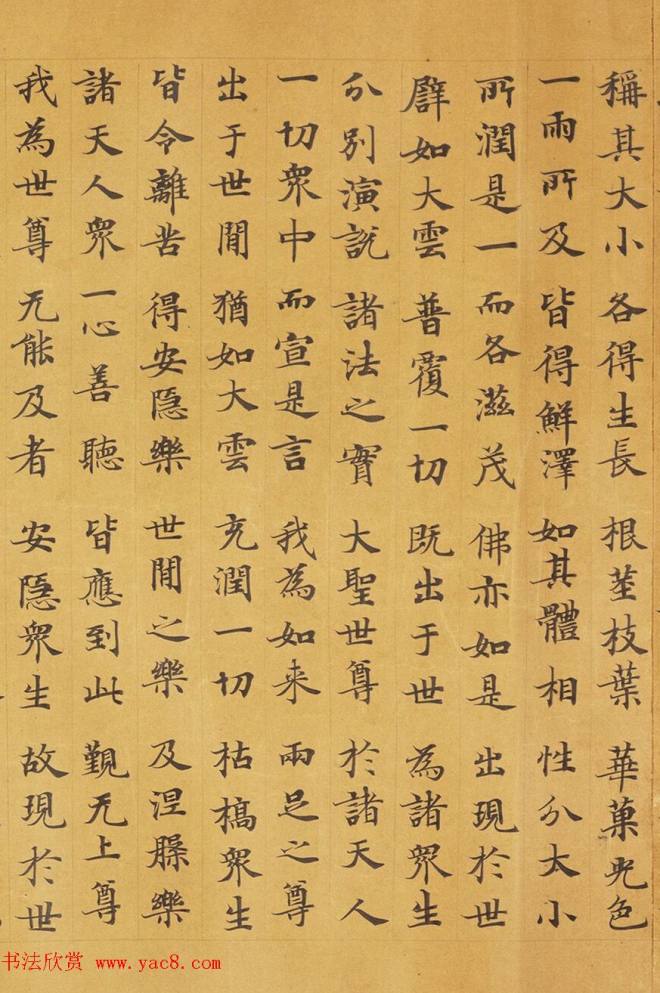 稱其大小 各得生長 根莖枝葉 華菓光色
一雨所及 皆得鮮澤 如其體相 性分大小
所潤是一 而各滋茂 佛亦如是 出現於世
譬如大雲 普覆一切 既出于世 為諸衆生
分別演說 諸法之實 大聖世尊 於諸天人
一切衆中 而宣是言 我為如来 兩足之尊
出于世閒 猶如大雲 充潤一切 枯槁衆生
皆令離苦 得安隱樂 世閒之樂 及涅槃樂
諸天人衆 一心善聽 皆應到此 覲无上尊
我為世尊 无能及者 安隱衆生 故現於世
书法欣赏 www.yac8.com